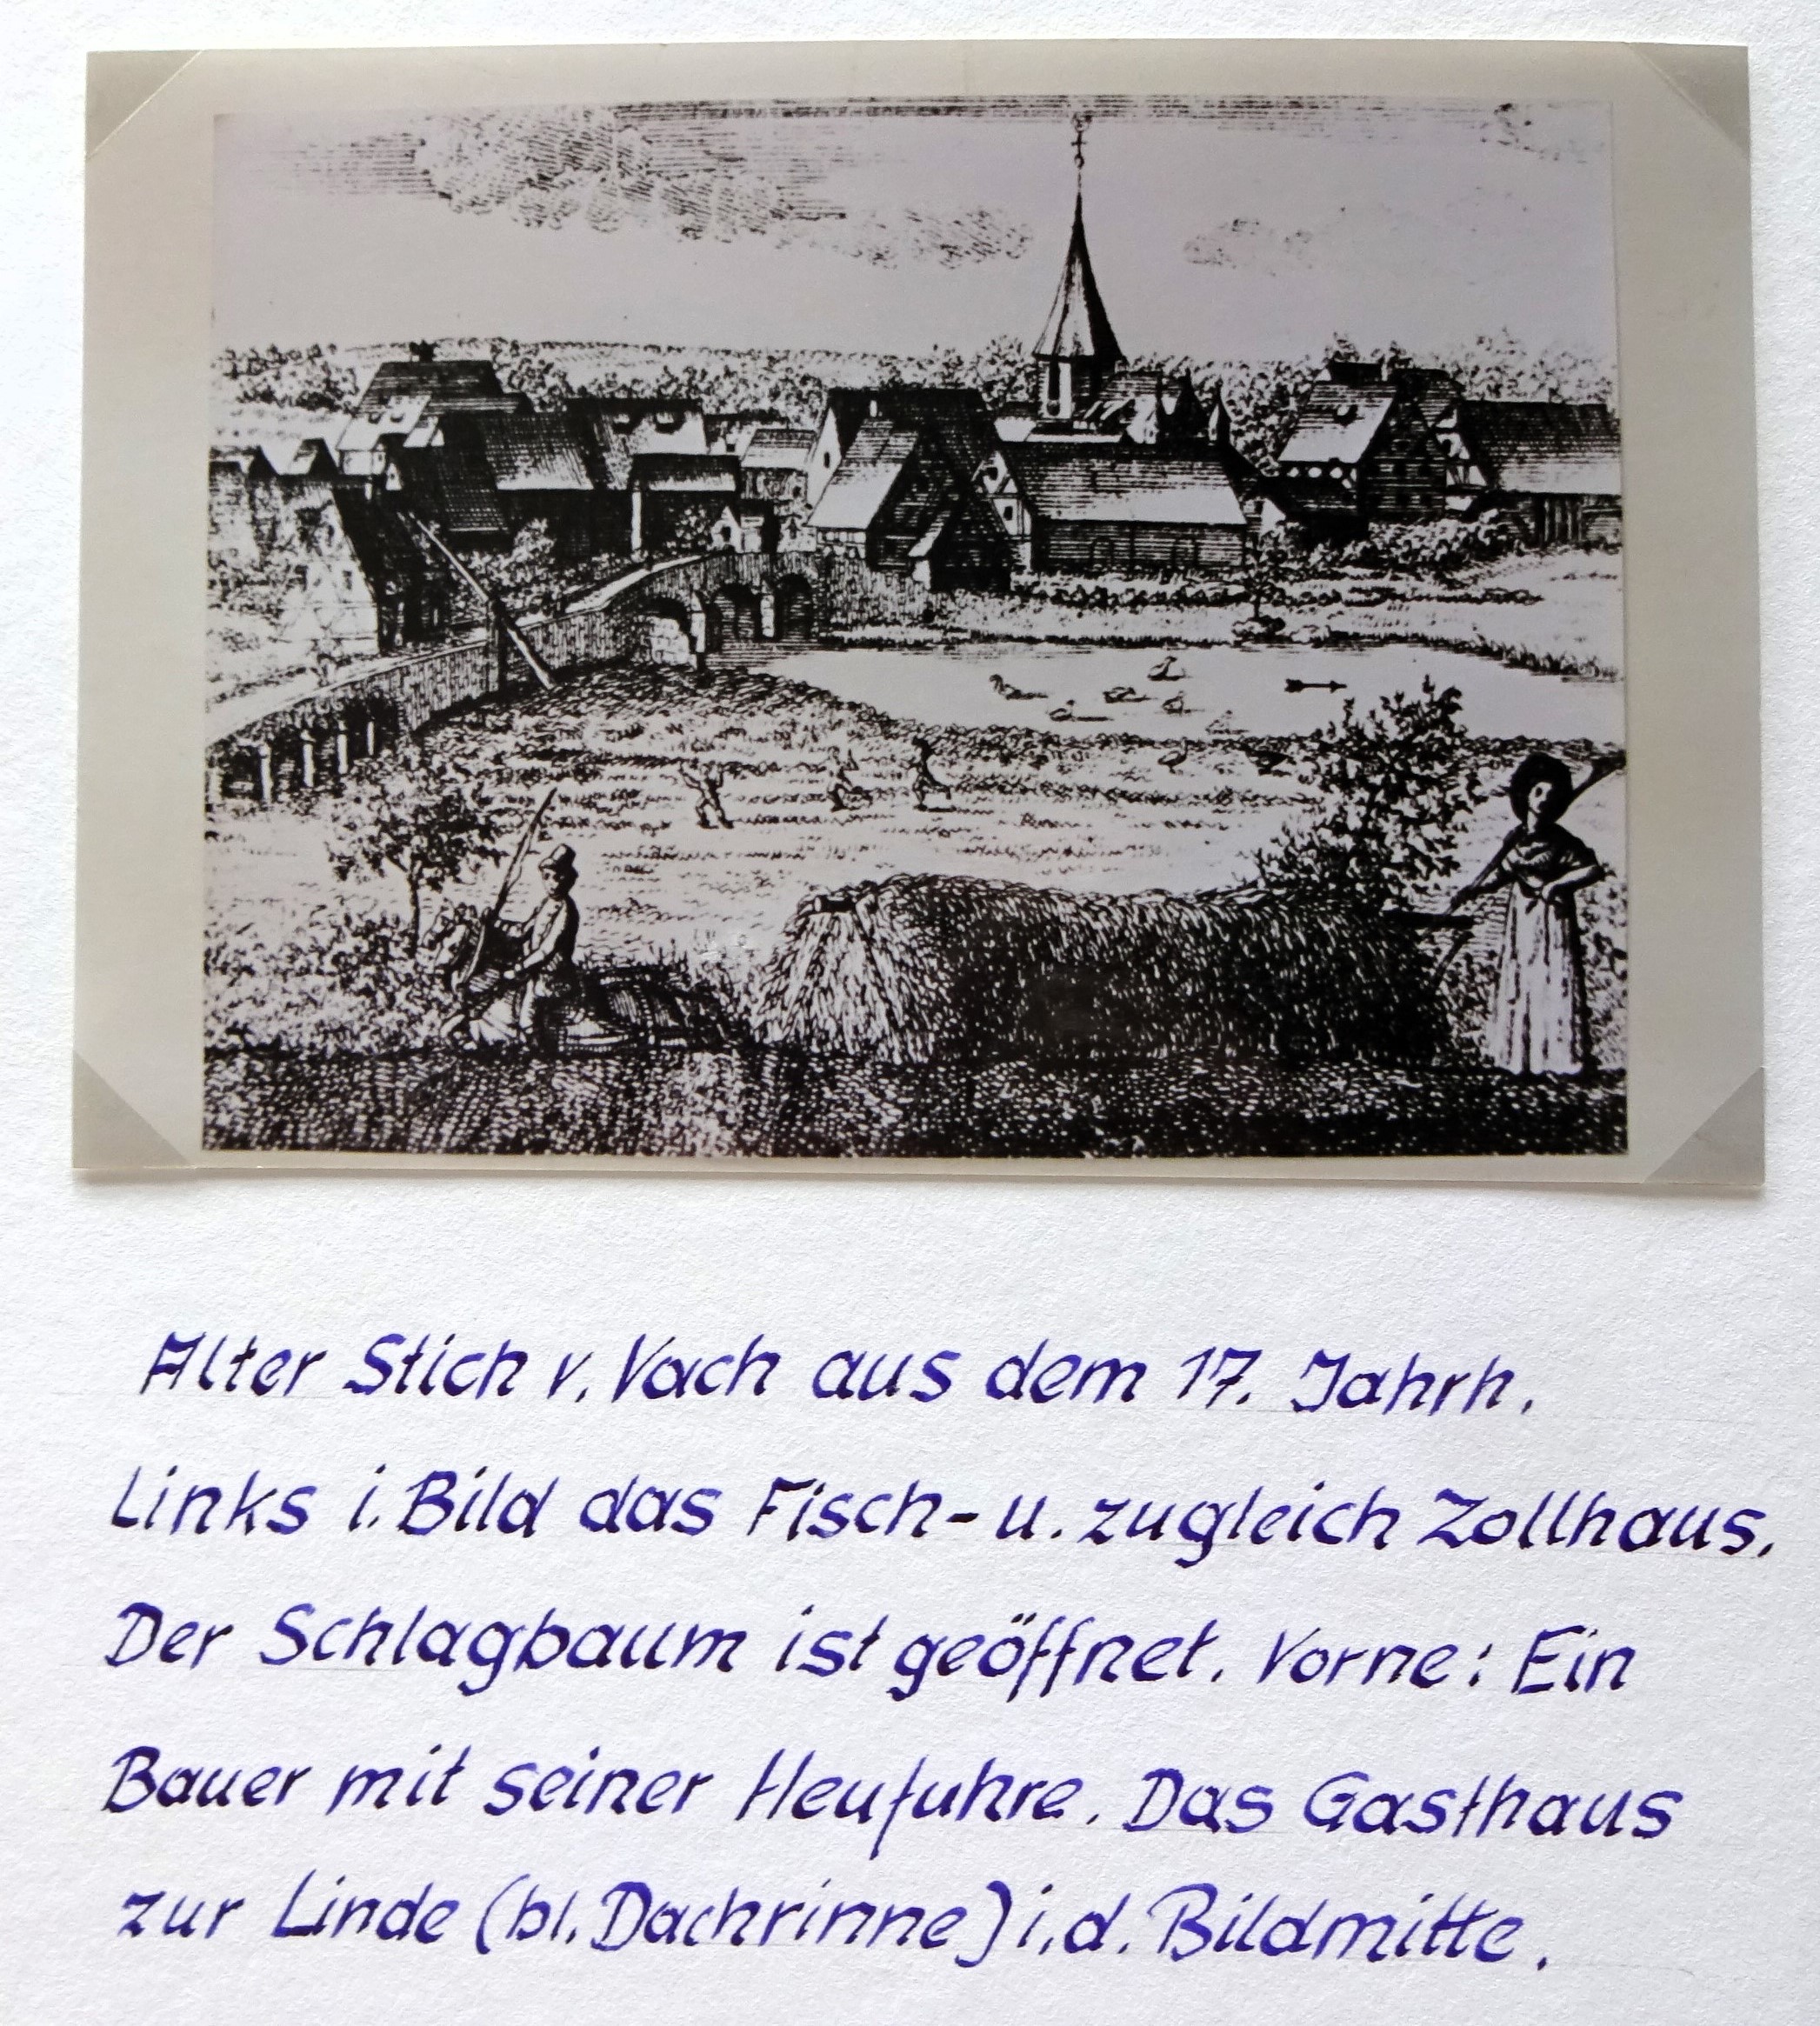 Alter Stich v. Vach aus dem 17. Jahrh.
Links i. Bild das Fisch- u. zugleich Zollhaus.
Der Schlagbaum ist geöffnet. Vorne: Ein
Bauer mit seiner Heufuhre. Das Gasthaus
zur Linde (bl. Dachrinne) i. d. Bildmitte.